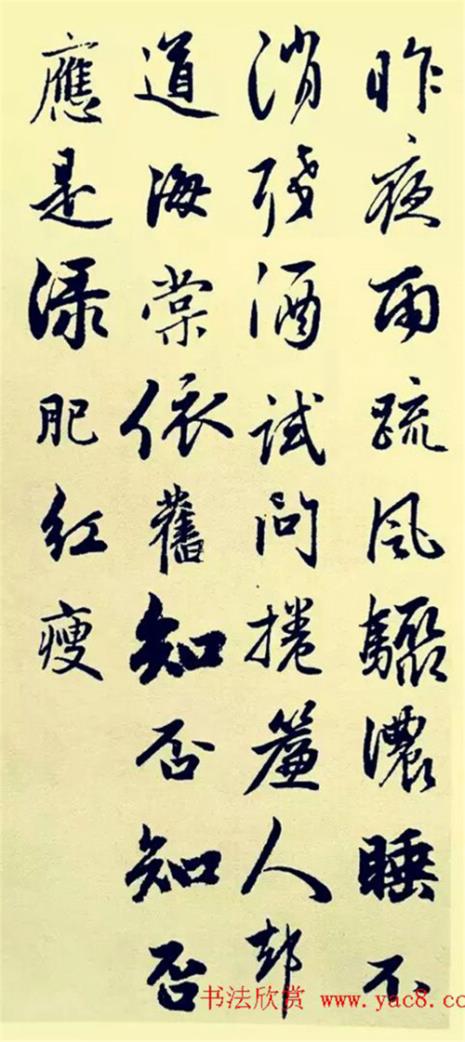 昨夜雨疏風驟濃睡不
消殘酒試問捲簾人却
道海棠依舊知否知否
應是渌肥紅瘦
书法欣赏 www.yac8.co